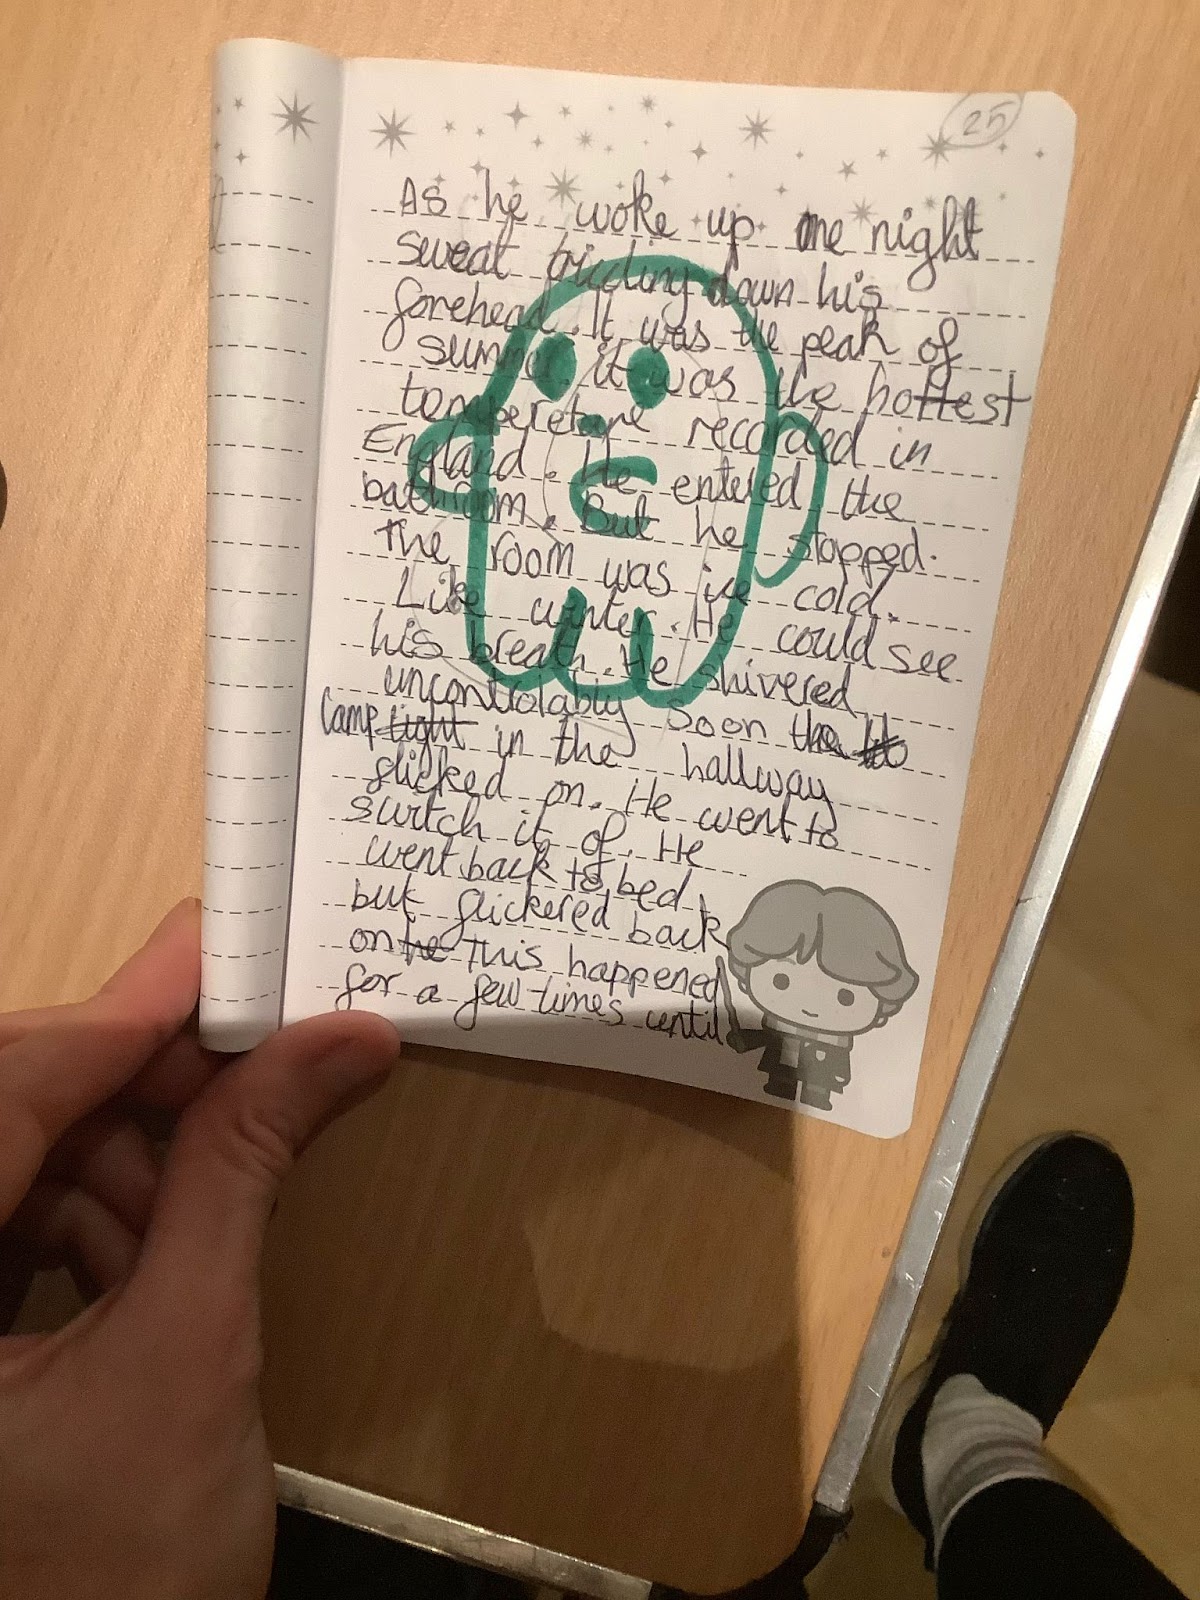 25
As he woke up one night
sweat tricling down his
forehead. It was the peak of
summer. it was the hottest
temperetare recorded in
England. He entered the
bathroom. But he stopped.
The room was ice cold.
Like winter. He could see
his breath. He shivered
uncontrolably soon the
lamp light in the hallway
flicked on. He went to
switch it of. He
went back to bed
but flickered back
on he This happened
for a few times until